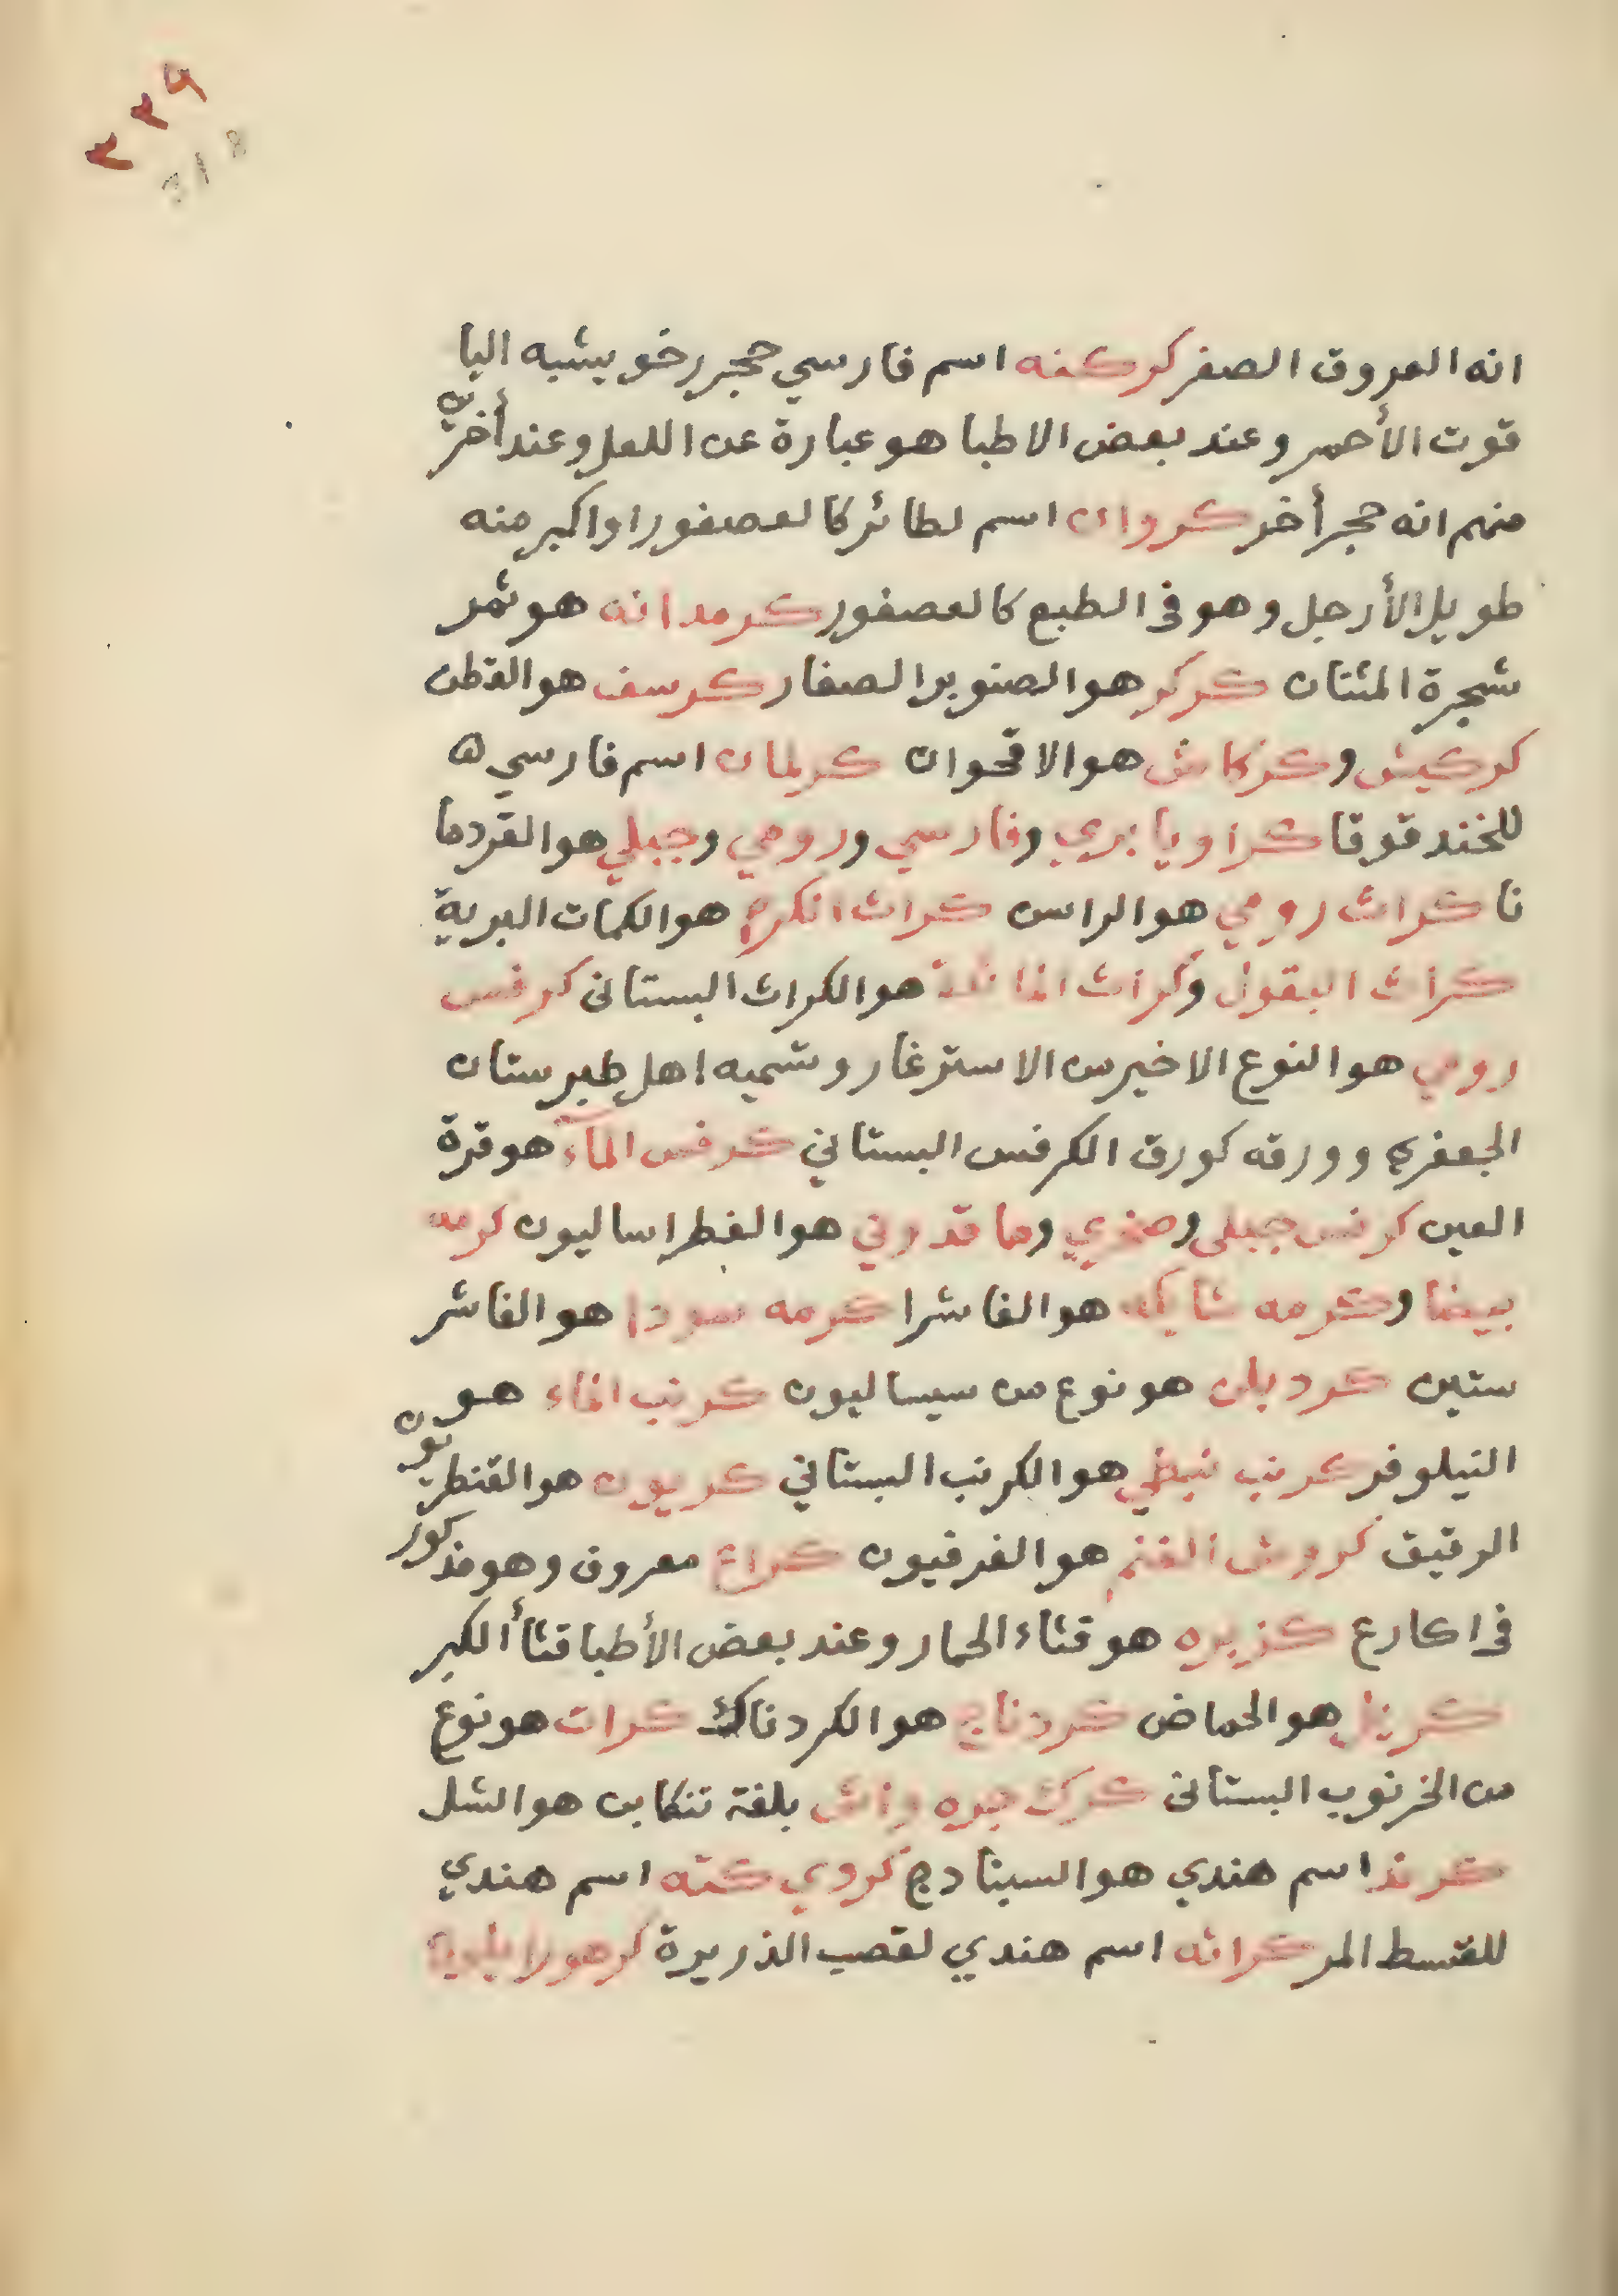 ٣٣٩
318
انه العروق الصفر كركنه اسم فارسي حجر رخو يشبه اليا
قوت الأحمر وعند بعض الاطبا هو عبارة عن اللعل وعند أخرين
منهم انه حجر أخر كروان اسم لطائر كالعصفور او اكبر منه
طويل الأرجل وهو فى الطبع كالعصفور كرمدانه هو ثمر
شجرة المثنان كركر هو الصنوبر الصغار كرسف هو القطن
كركيش وكركاش هو الاقحوان كريلمان اسم فارسي ه
للخندقوقا كراويا بري وفارسي ورومي وجبلي هو القردما
نا كراث رومي هو الراسن كراث الكرم هو الكمات البرية
كراث البقول وكراث المائدة هو الكراث البستانى كرفس
رومي هو النوع الاخير من الاسترغار وتسميه اهل طبرستان
الجعفري وورقه كورق الكرفس البستاني كرفس المآء هو قرة
العين كرفس جبلى وصخري وماقدوني هو الفطراساليون كرمه
بيضا وكرمه شايكه هو الفاشرا كرمه سودا هو الفاشر
ستين كرديلن هو نوع من سيساليون كرنب الماء هو
النيلوفر كرنب نبطي هو الكرنب البستاني كريون هو القنطريون
الرقيق كروش الغنم هو الفرفيون كراع معروف وهو مذكور
فى اكارع كزبره هو قثاء الحمار وعند بعض الأطبا قثاأ الكبر
كرنل هو الحماض كردناج هو الكردناك كرات هو نوع
من الخرنوب البستانى كرك جره واش بلغة تنكابن هو الشل
كرند اسم هندي هو السبنادج كروي كته اسم هندي
للقسط المر كراثه اسم هندي لقصب الذريرة